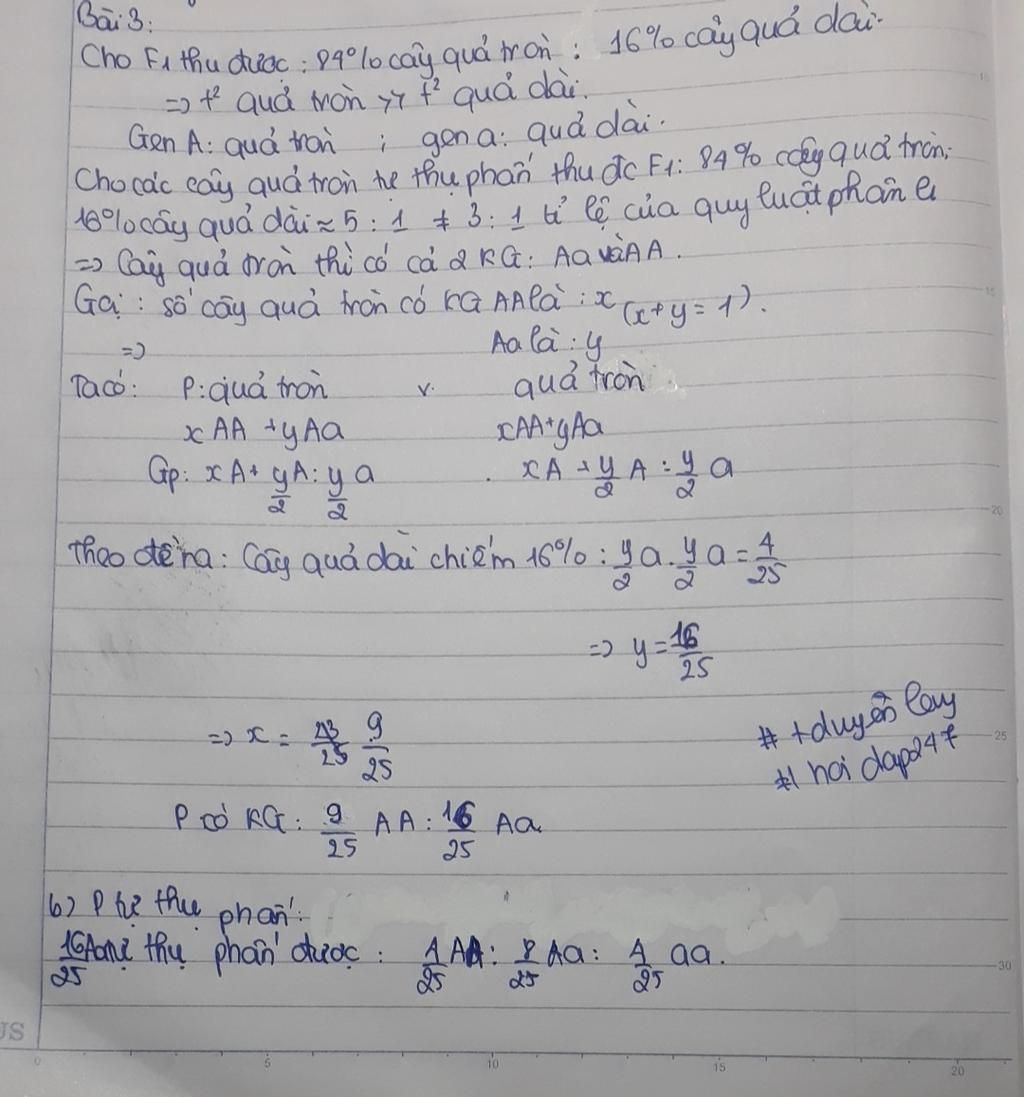 Bài 3:
Cho F1 thu được: 84% cây quả tròn : 16% cây quả dài.
=> t² quả tròn >> t² quả dài.
Gen A: quả tròn ; gen a: quả dài.
Cho các cây quả tròn tự thụ phấn thu đc F1: 84% cây quả tròn;
16% cây quả dài ≈ 5 : 1 ≠ 3 : 1 tỉ lệ của quy luật phân li
=> Cây quả tròn thì có cả 2 KG: Aa và AA.
Gọi : số cây quả tròn có KG AA là : x (x+y = 1).
=> Aa là : y
Ta có: P: quả tròn x quả tròn
xAA + yAa xAA+yAa
Gp: xA + y/2 A : y/2 a . xA + y/2 A : y/2 a
Theo đề ra: Cây quả dài chiếm 16% : y/2 a . y/2 a = 4/25
=> y = 16/25
=> x = 9/25
# tduyên
#hoidap247
P có KG: 9/25 AA : 16/25 Aa
b) P tự thụ phấn:
16/25 Aa tự thụ phấn được : 4/25 AA : 8/25 Aa : 4/25 aa.
US
0 5 10 15 20
15
20
25
30